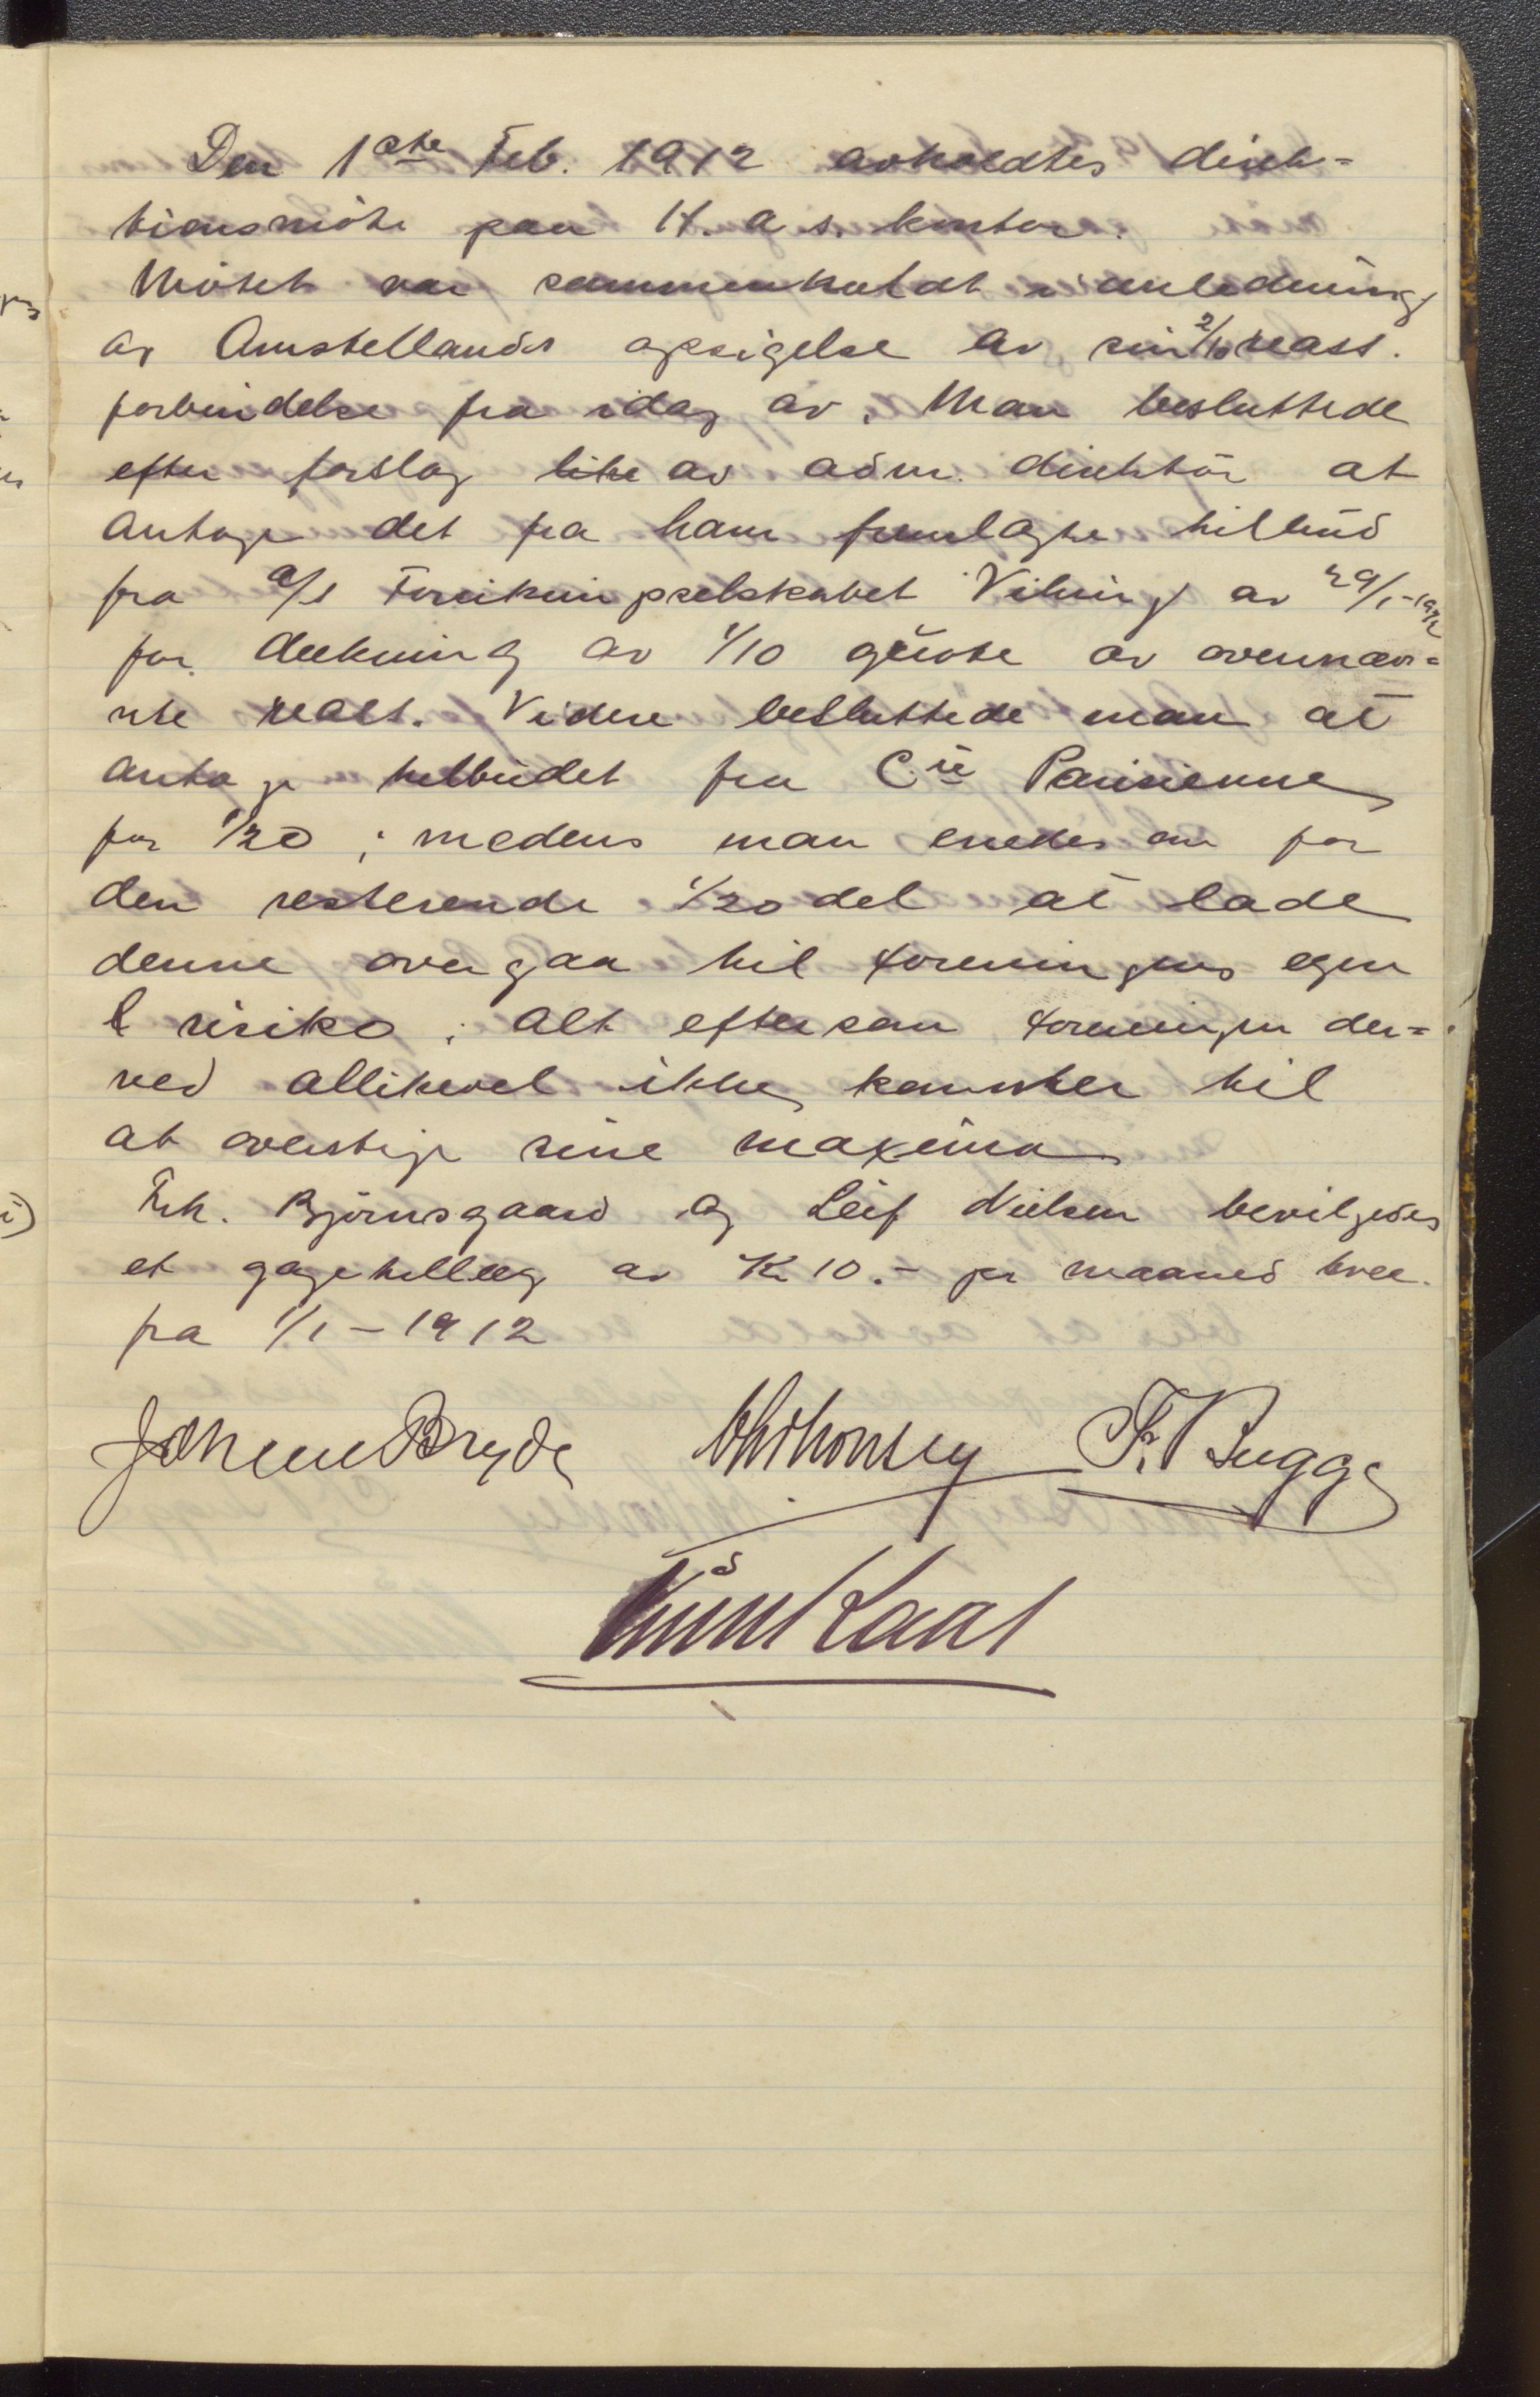 Den 1ste Feb. 1912 avholdtes direk=
tionsmöte paa H. A. s. kontor.
Mötet var sammenkaldt i anledning
av Amstellands opsigelse av sin 2/10 reass.
forbindelse fra idag av. Man besluttede
efter forslag av adm. direktör at
antage det fra ham fremlagte tilbud
fra A/S Forsikringsselskabet Viking av 29/1-1912
for dekning av 1/10 qvote av ovennæv=
nte reass. Videre besluttede man at
antage tilbudet fra Cie Parisienne
for 1/20; medens man enedes om for
den resterende 1/20 del at lade
denne overgaa til foreningens egen
risiko; alt eftersom foreningen der=
ved allikevel ikke kommer til
at overstige sine maxima
Frk. Björnsgaard og Leif Nielsen bevilgedes
et gagetillæg av Kr 10.- pr maaned hver.
fra 1/1 - 1912
Johan Bryde Fr. Bugge